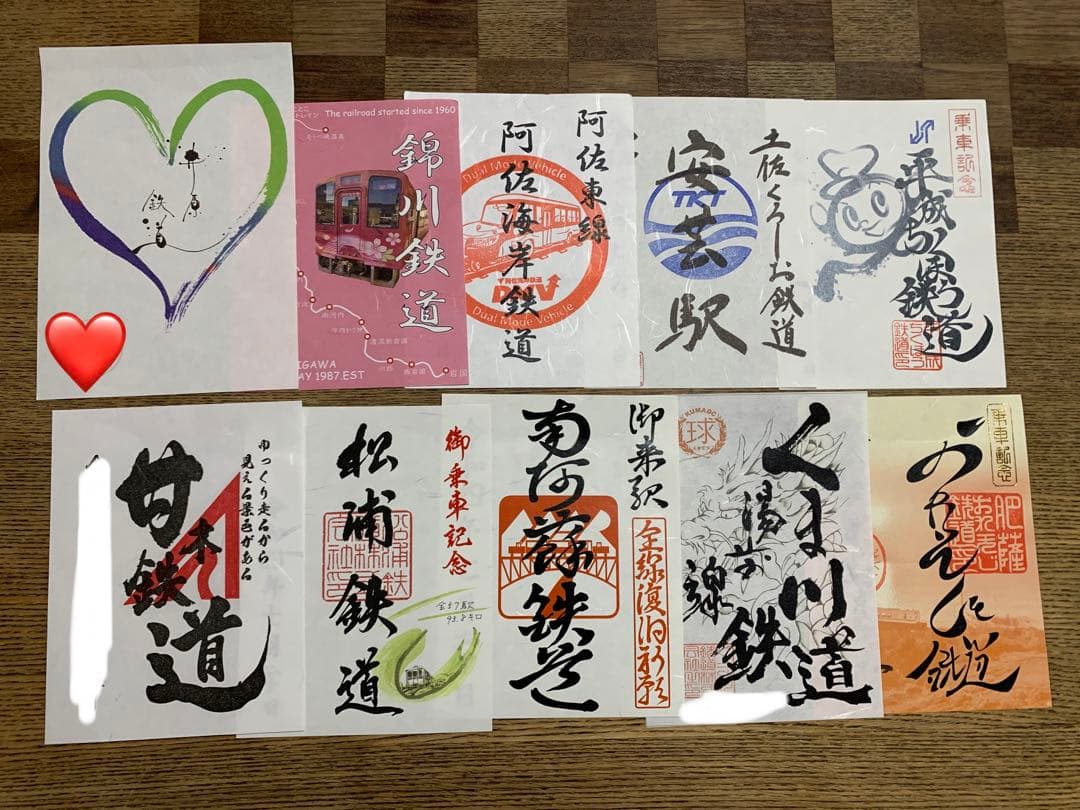 井原
鉄道
The railroad started since 1960
錦川鉄道
南河内
川西
西岩国
岩国
1987.EST
阿佐東線
阿佐海岸鉄道
Dual Mode Vehicle
DMV
Dual Mode Vehicle
土佐くろしお鉄道
安芸駅
TKT
乗車記念
平成ちくほう鉄道
ゆっくり走るから
見える景色がある
甘木鉄道
御乗車記念
松浦鉄道
全57駅
93.8キロ
御来駅
南阿蘇鉄道
全線復旧祈願
KUMADC
球
くま川鉄道
湯前線
乗車記念
肥薩
おれんじ鉄道